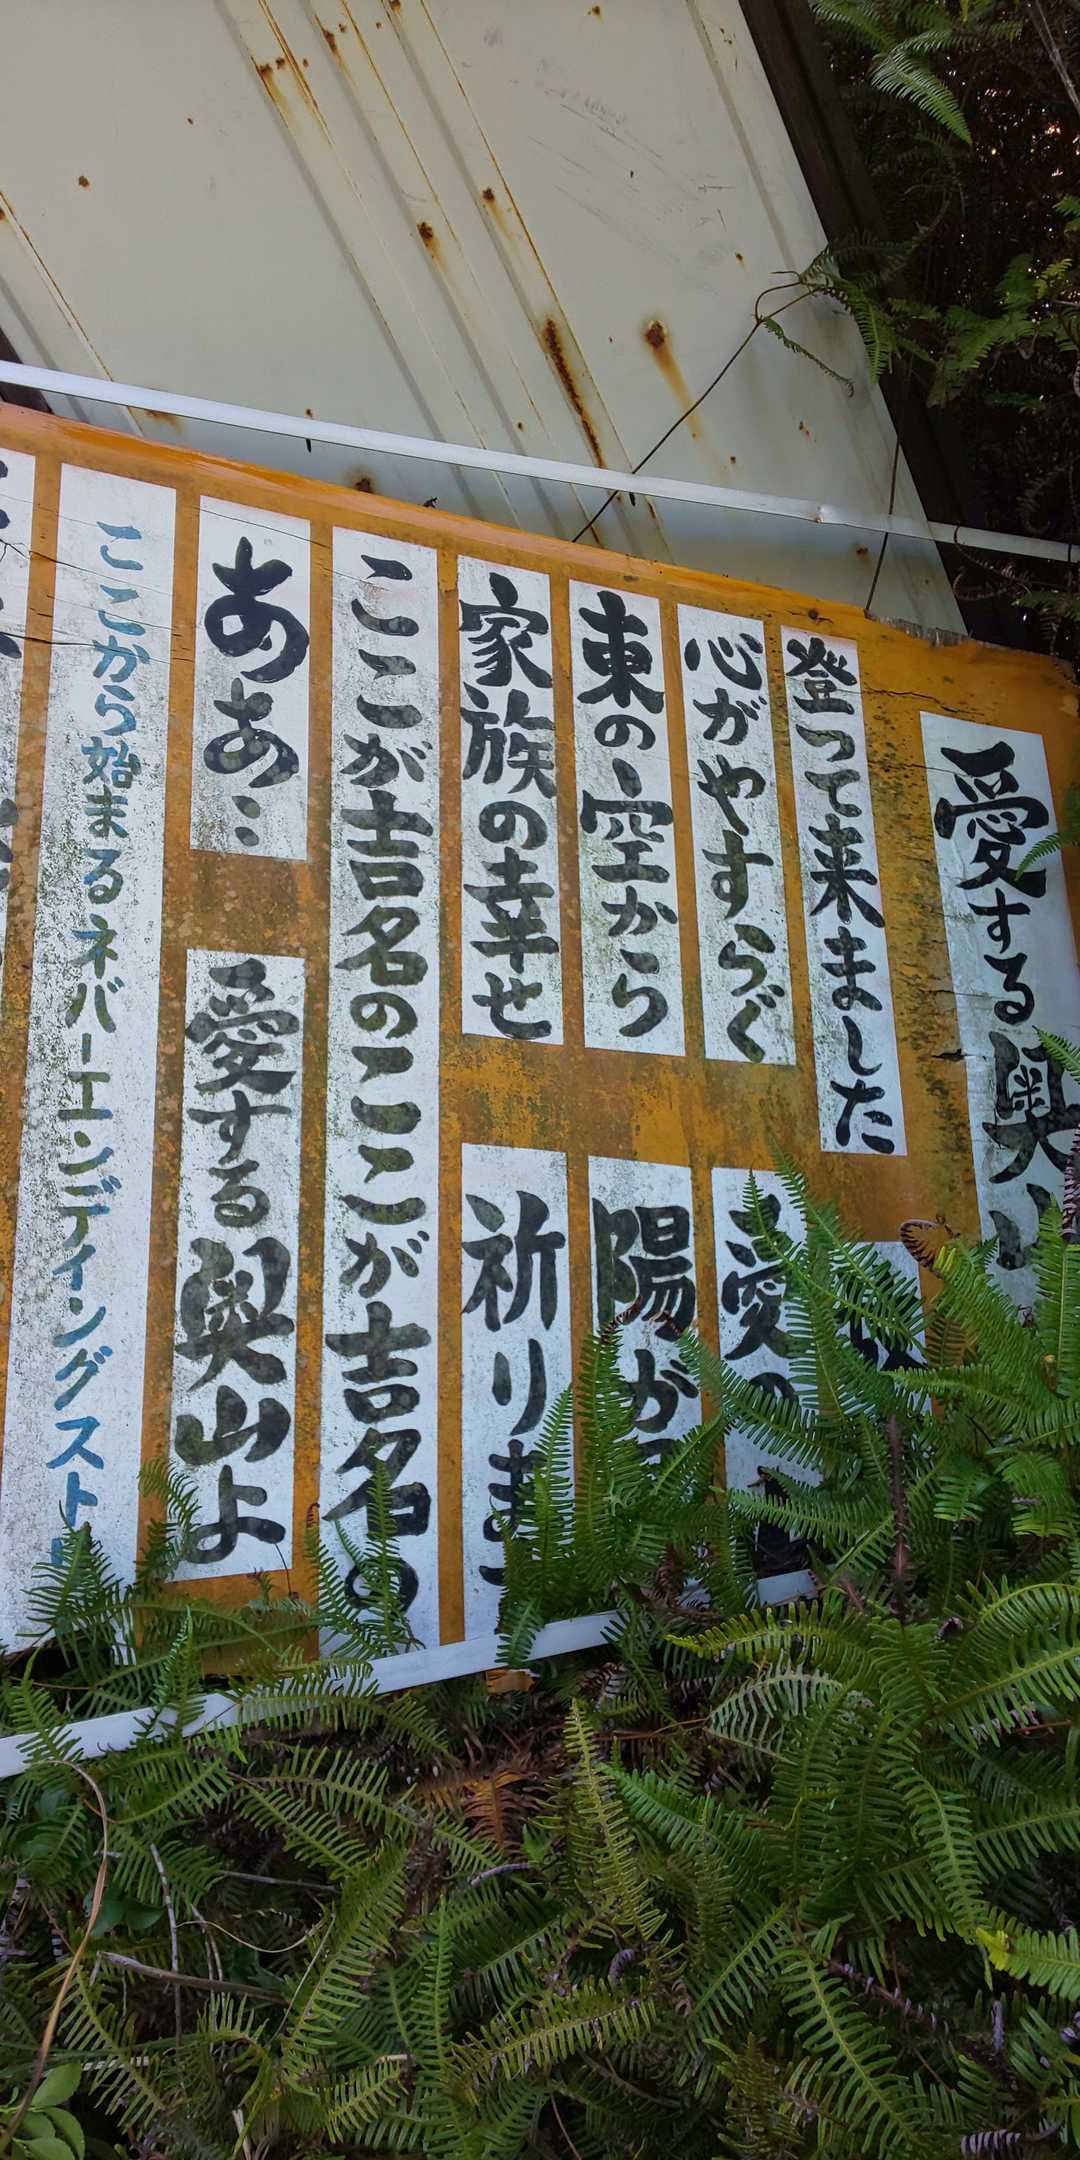 愛する奥山
登って来ました
心がやすらぐ
愛の
東の空から
陽が
家族の幸せ
祈りま
ここが吉名のここが吉名の
ああ…
愛する奥山よ
ここから始まるネバーエンディングスト